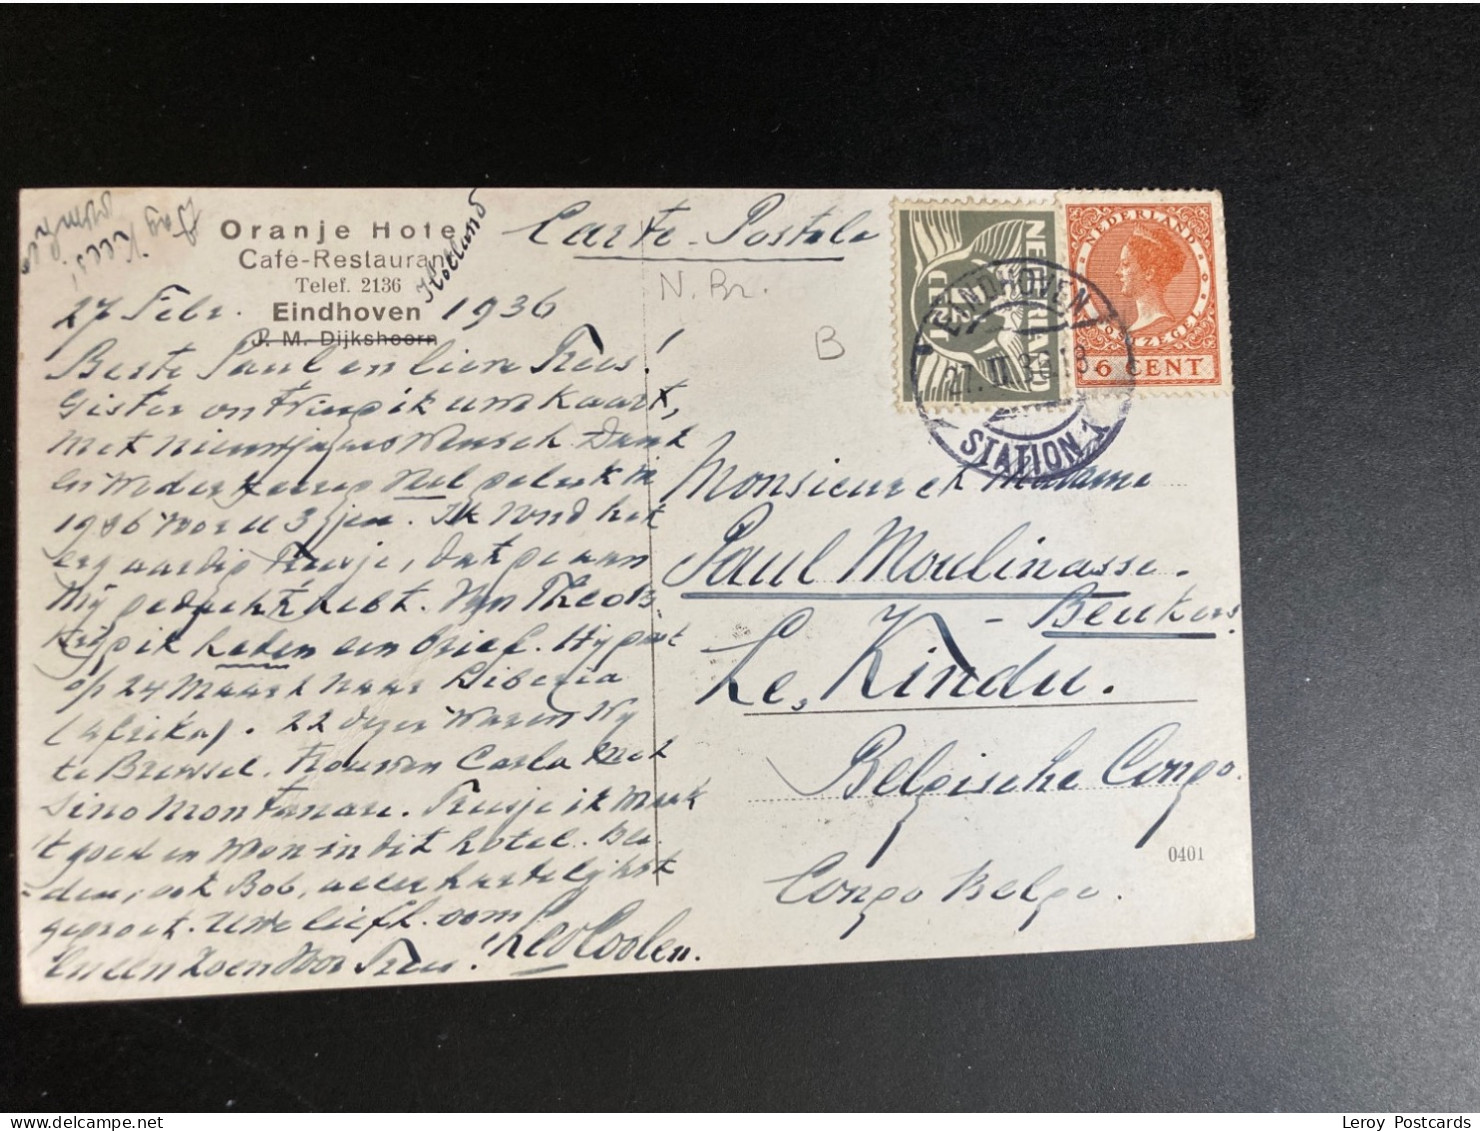 Oranje Hotel
Café-Restaurant
Telef. 2136
Eindhoven
J. M. Dijkshoorn
Holland
Dag Kees!
27 Febr. 1936
Beste Paul en lieve Trees!
Gister ontving ik uwe Kaart,
met nieuwjaars Wensch. Dank
en Wederkeerig Veel geluk in
1936 voor u 3 jes. Ik vond het
erg aardig Treesje, dat ge aan
Mij gedacht hebt. Van Theo B.
Krijg ik heden een brief. Hij gaat
op 24 Maart naar Liberia
(Afrika). 22 dezer Waren Wij
te Brussel. Trouwen Carla met
Dino Montanari. Treesje ik Maak
't goed en Woon in dit hotel. Bei
den, ook Bob, aller hartelijkst
gegroet. Uwe liefh. oom
Leo Coolen.
En een Zoen Voor Trees.
Carte-Postale
N. Br.
B
NEDERLAND
NEDERLAND
POSTZEGEL
6 CENT
EINDHOVEN
27.II.36 18
STATION 1
Monsieur et Madame
Paul Moulinasse.
- Beukers.
Le, Kindu.
Belgische Congo.
0401
Congo Belge.
Leroy Postcards